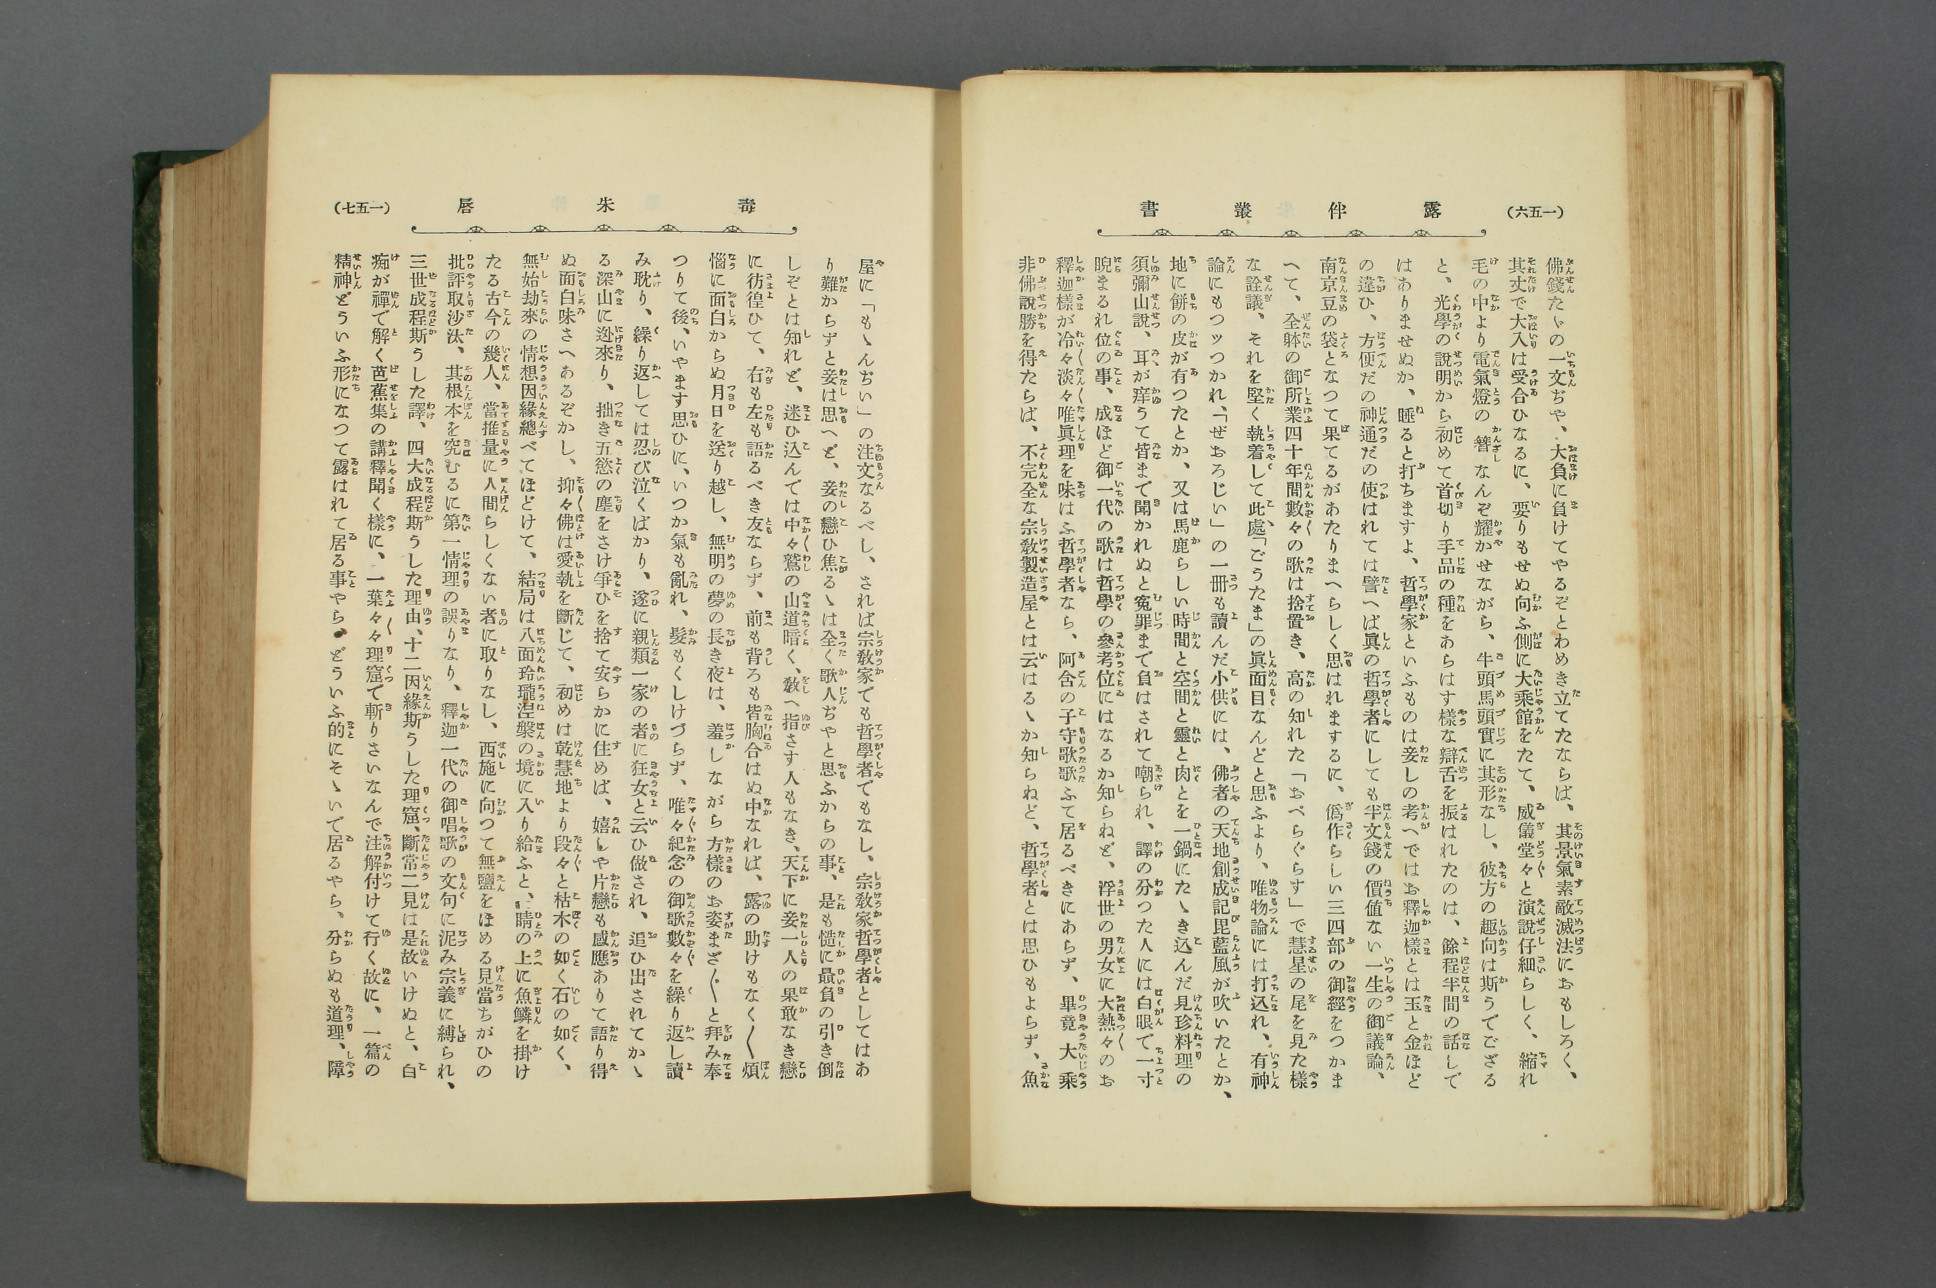 (一五六)
露伴叢書
佛錢たゞの一文ぢや、大負に負けてやるぞとわめき立てたならば、其景氣素敵滅法におもしろく、
其丈で大入は受合ひなるに、要りもせぬ向ふ側に大乘館をたて、威儀堂々と演說仔細らしく、縮れ
毛の中より電氣燈の簪なんぞ耀かせながら、牛頭馬頭實に其形なし、彼方の趣向は斯うでござる
と、光學の說明から初めて首切り手品の種をあらはす樣な辯舌を振はれたのは、餘程半間の話して
はありませぬか、睡ると打ちますよ、哲學家といふものは妾しの考へではお釋迦樣とは玉と金ほど
の違ひ、方便だの神通だの使はれては譬へば眞の哲學者にしても半文錢の價値ない一生の御議論、
南京豆の袋となつて果てるがあたりまへらしく思はれまするに、僞作らしい三四部の御經をつかま
へて、全躰の御所業四十年間數々の歌は捨置き、高の知れた「おべらぐらす」で慧星の尾を見た樣
な詮議、それを堅く執着して此處「ごうたま」の眞面目なんどと思ふより、唯物論には打込れ、有神
論にもつツつかれ、「ぜおろじい」の一冊も讀んだ小供には、佛者の天地創成記毘藍風が吹いたとか、
地に餅の皮が有つたとか、又は馬鹿らしい時間と空間と靈と肉とを一鍋にたゝき込んだ見珍料理の
須彌山說、耳が痒うて皆まで聞かれぬと寃罪まで負はされて嘲られ、譯の分つた人には白眼で一寸
睨まるれ位の事、成ほど御一代の歌は哲學の參考位にはなるか知らねど、浮世の男女に大熱々のお
釋迦樣が冷々淡々唯眞理を味はふ哲學者なら、阿含の子守歌歌ふて居るべきにあらず、畢竟大乘
非佛說勝を得たらば、不完全な宗敎製造屋とは云はるゝか知らねど、哲學者とは思ひもよらず、魚
毒朱唇
(一五七)
屋に「もゝんぢい」の注文なるべし、されば宗敎家でも哲學者でもなし、宗敎家哲學者としてはあ
り難からずと妾は思へど、妾の戀ひ焦るゝは全く歌人ぢやと思ふからの事、是も慥に贔負の引き倒
しぞとは知れど、迷ひ込んでは中々鷲の山道暗く、敎へ指さす人もなき、天下に妾一人の果敢なき戀
に彷徨ひて、右も左も語るべき友ならず、前も背ろも皆胸合はぬ中なれば、露の助けもなく〱煩
惱に面白からぬ月日を送り越し、無明の夢の長き夜は、羞しながら方樣のお姿まざ〱と拜み奉
つりて後、いやます思ひに、いつか氣も亂れ、髮もくしけづらず、唯々紀念の御歌數々を繰り返し讀
み耽り、繰り返しては忍び泣くばかり、遂に親類一家の者に狂女と云ひ做され、追ひ出されてかゝ
る深山に迯來り、拙き五慾の塵をさけ爭ひを捨て安らかに住めば、嬉しや片戀も感應ありて語り得
ぬ面白味さへあるぞかし、抑々佛は愛執を斷じて、初めは乾慧地より段々と枯木の如く石の如く、
無始劫來の情想因緣總べてほどけて、結局は八面玲瓏涅槃の境に入り給ふと、睛の上に魚鱗を掛け
たる古今の幾人、當推量に人間らしくない者に取りなし、西施に向つて無鹽をほめる見當ちがひの
批評取沙汰、其根本を究むるに第一情理の誤りなり、釋迦一代の御唱歌の文句に泥み宗義に縛られ、
三世成程斯うした譯、四大成程斯うした理由、十二因緣斯うした理窟、斷常二見は是故いけぬと、白
痴が禪で解く芭蕉集の講釋聞く樣に、一葉々々理窟で斬りさいなんで注解付けて行く故に、一篇の
精神どういふ形になつて露はれて居る事やら、どういふ的にそゝいで居るやら、分らぬも道理、障